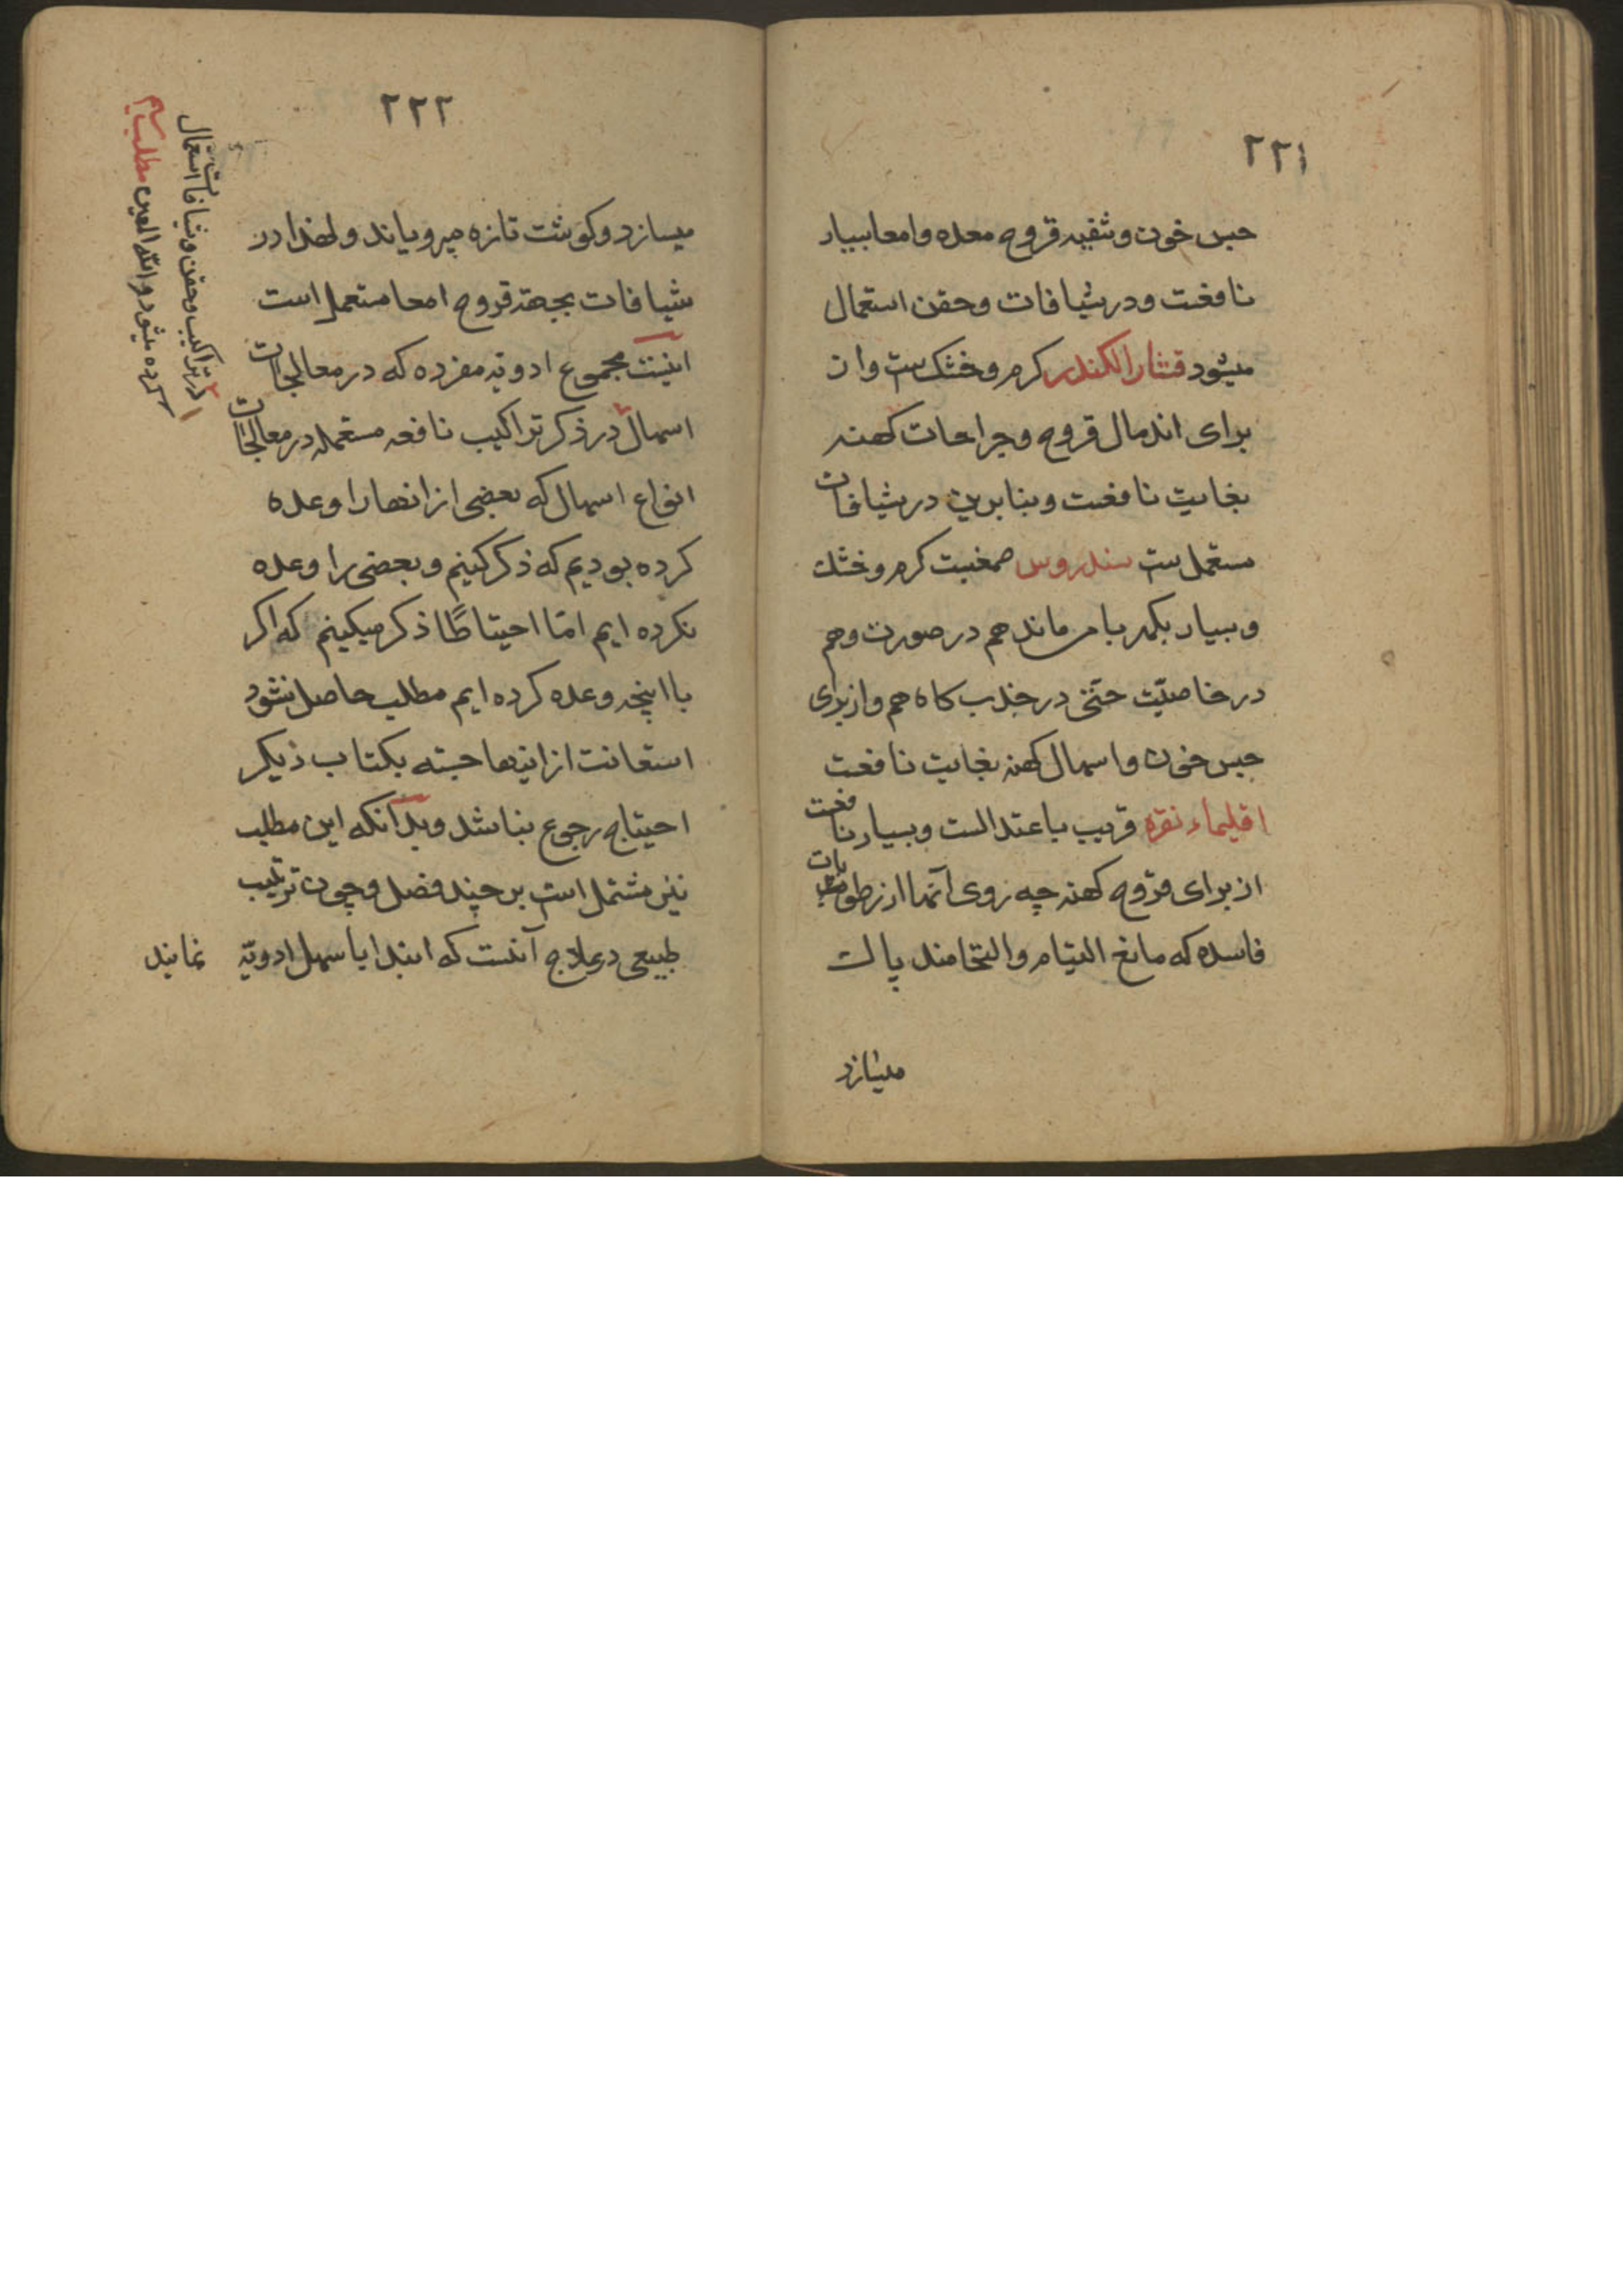 ۲۲۱
حبس خون و تنقیه قروح معده و امعا بسیار
نافعست و در شیافات و حقن استعمال
میشود قشار الکندر کرم و خشک ست و از
برای اندمال قروح و جراحات کهنه
بغایت نافعست و بنابرین در شیافات
مستعمل ست سندروس صمغیست کرم و خشک
و بسیار بکهربا می ماند هم در صورت و هم
در خاصیّت حتّی در جذب کاه هم و از برای
حبس خون و اسهال کهنه بغایت نافعست
اقلیماء نقره قریب باعتدالست و بسیار نافعست
از برای قروح کهنه چه روی آنها از رطوبات
فاسده که مانع التیام و التحامند پاک
میسازد
۲۲۲
میسازد و کوشت تازه میرویاند و لهذا در
شیافات بجهة قروح امعا مستعمل است
اینست مجموع ادویه مفرده که در معالجات
اسهال در ذکر تراکیب نافعه مستعمله در معالجات
انواع اسهال که بعضی از انها را وعده
کرده بودیم که ذکر کنیم و بعضی را وعده
نکرده ایم امّا احتیاطًا ذکر میکنیم که اکر
با اینچه وعده کرده ایم مطلب حاصل نشود
استعانت از اینها جسته بکتاب دیکر
احتیاج رجوع نباشد و بدانکه این مطلب
نیز مشتمل است بر چند فصل و چون ترتیب
طبیعی در علاج آنست که ابتدا باسهل ادویّه نمایند
در تراکیب و حقن و شیافات استعمال
کرده میشود و الله المعین مطلب سیم